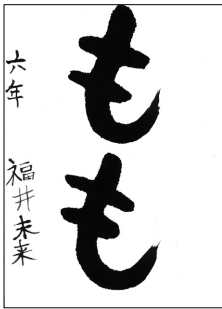 もも
六年 福井未来